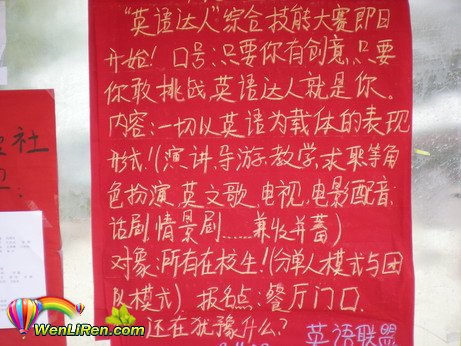 “英语达人”综合技能大赛即日
开始！口号：只要你有创意，只要
你敢挑战英语达人就是你。
内容：一切以英语为载体的表现
形式！(演讲、导游、教学、求职等角
色扮演、英文歌、电视、电影配音、
话剧、情景剧......兼收并蓄)
对象：所有在校生！(分单人模式与团
队模式) 报名点：餐厅门口
还在犹豫什么？ 英语联盟
社
WenLiRen.com